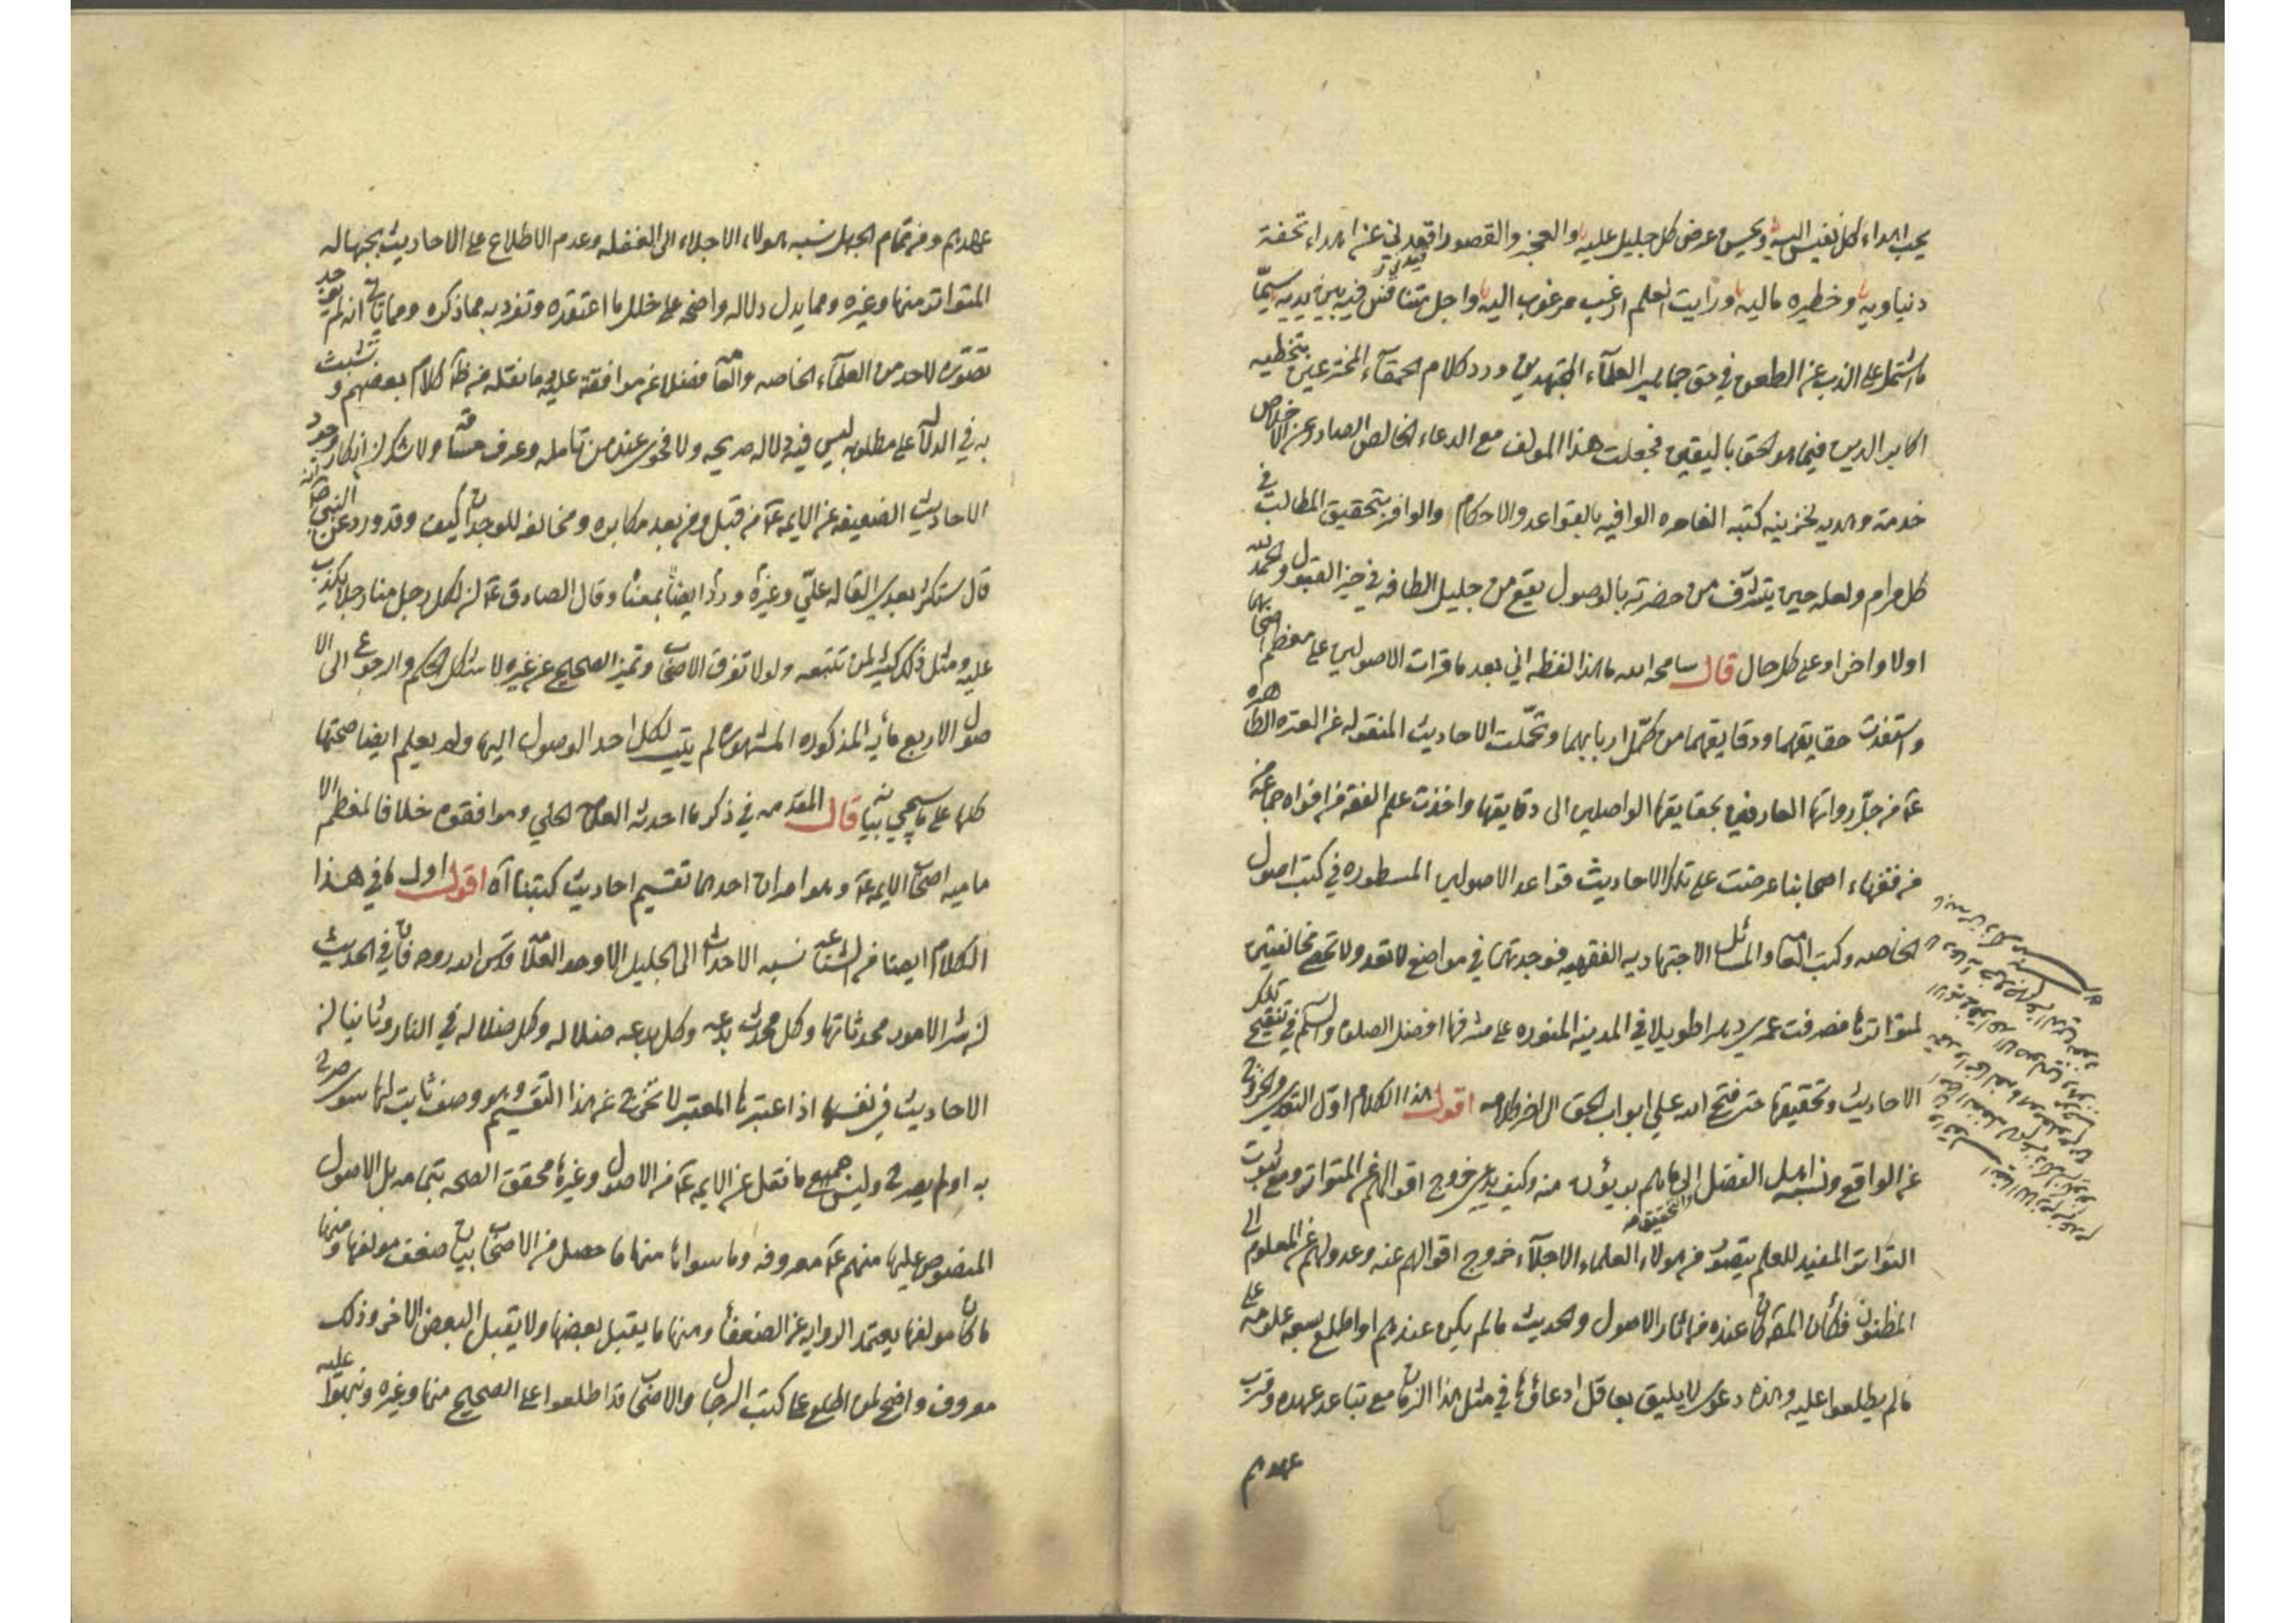 يحب اهداء كل نفيس اليه ويحسن عرض كل جليل عليه والعجز والقصور اقعدني عن اهداء تحفة
دنياويه وخطيره ماليه ورايت العلم ارغب مرغوب اليه واجل متنافس فيه بين يديه سيّما
ما اشتمل على الذب عن الطعن في حق جماهير العلمآء المجتهدين ورد كلام الحمقآء المخترعين بتخطيه
اكابر الدين فيما هو الحق باليقين فجعلت هذا المولف مع الدعاء الخالص الصادر عن الاخلاص
خدمة وهديه لخزينه كتبه العامره الوافيه بالقواعد والاحكام والوافر بتحقيق المطالب في
كل مرام ولعله حين يتشرّف من حضرته بالوصول يقع من جليل الطافه في حيز القبول والحمد لله
اولا واخرا وعلى كل حال قال سامحه الله ما هذا لفظه اني بعد ما قرات الاصولين على معظم اصحابهما
واستفدت حقايقهما ودقايقهما من كمّل اربابهما وتحمّلت الاحاديث المنقوله عن العترة الطاهره
عم من جلّ رواتها العارفين بحقايقها الواصلين الى دقايقها واخذت علم الفقه من افواه جماعة
من فقهاء اصحابنا عرضت على تلك الاحاديث قواعد الاصولين المسطوره في كتب اصول
الخاصه وكتب العامه والمسائل الاجتهاديه الفقهيه فوجدتهما في مواضع لا تعد ولا تحصى مخالفتين
لمتواترها فصرفت عمري دهرا طويلا في المدينه المنوره على مشرفها افضل الصلوه والسلم في تنقيح تلك
الاحاديث وتحقيقها حتى فتح الله علي ابواب الحق الى اخر كلامه اقول هذا الكلام اول التعدي والخروج
عن الواقع ونسبة اهل الفضل الى ما هم بريؤن منه وكيف يدعي خروج اقوالهم عن المتواتر ومع ثبوت
التواتر المفيد للعلم يتصور من هولاء العلماء الاجلآء خروج اقوالهم عنه وعدولهم عن المعلوم الى
المظنون فكأن المصنف كان عنده من اثار الاصول والحديث ما لم يكن عندهم او اطلع بسعه علومه على
ما لم يطلعوا عليه وهذه دعوى لا يليق بعاقل ادعاؤها في مثل هذا الزمان مع تباعد عهده وقرب
عهدهم
عهدهم ومن تمام الجهل نسبه هولاء الاجلاء الى الغفله وعدم الاطلاع على الاحاديث بجهاله
المتواتر منها وغيره ومما يدل دلاله واضحه على خلل ما اعتقده وتفرد به مما ذكره ومما ياتي انه لم يوجد
تصوّره لاحد من العلمآء الخاصه والعامه فضلا عن موافقة عليه ما نقله من كلام بعضهم وتشبث
به في الدلالة على مطلوبه ليس فيه دلاله صريحه ولا فحوى عند من تامله وعرف ولا شك ان انكار وجود
الاحاديث الضعيفه عن الايمه عم من قبل ومن بعد مكابره ومخالفه للوجدان كيف وقد ورد عن النبي ص انه
قال ستكثر بعدي القالة عليّ وغيره ورد ايضا بمعناه وقال الصادق عم ان لكل رجل منا رجلا يكذب
عليه ومثل ذلك كثير لمن تتبعه ولولا تفرق الاصحاب وتميز الصحيح عن غيره لاشكل الحكم والرجوع الى الا
صول الاربع مأيه المذكوره المشهوره لم يتيسر لكل احد الوصول اليها ولم يعلم ايضا صحتها
كلها على ما سيجيي بيانه قال المقدمه في ذكر ما احدثه العلامه الحلي وموافقوه خلافا لمعظم الا
ماميه اصحاب الايمه عم وهو امران احدهما تقسيم احاديث كتبنا آه اقول اول ما في هذا
الكلام ايضا من الشناعه نسبه الاحداث الى الجليل الاوحد العلامه قدس الله روحه فان في الحديث
ان شر الامور محدثاتها وكل محدث بدعه وكل بدعه ضلاله وكل ضلاله في النار وثانيا ان
الاحاديث في نفسها اذا اعتبرها المعتبر لا تخرج عن هذا التقسيم وهو وصف ثابت لها سواء صرح
به او لم يصرح وليس جميع ما نقل عن الايمه عم من الاصول وغيرها محقق الصحه بتمامه بل الاصول
المنصوص عليها منهم عم معروفه وما سواها منها ما حصل من الاصحاب بيان ضعف مولفها ومنها
ما كان مولفها يعتمد الروايه عن الضعفاء ومنها ما يقبل بعضها ولا يقبل البعض الاخر وذلك
معروف واضح لمن اطلع على كتب الرجال والاصحاب قد اطلعوا على الصحيح منها وغيره ونبهوا عليه